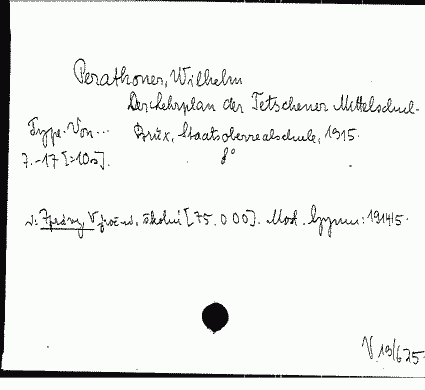 Perathoner, Wilhelm
Der Lehrplan der Tetschener Mittelschul-
Type. Von... Brüx, Staatsoberrealschule, 1915.
7.-17 [=10s]. 8°
v: Zprávy, V školní [75.000]. Most. Gymn: 1914/5.
V 19/625